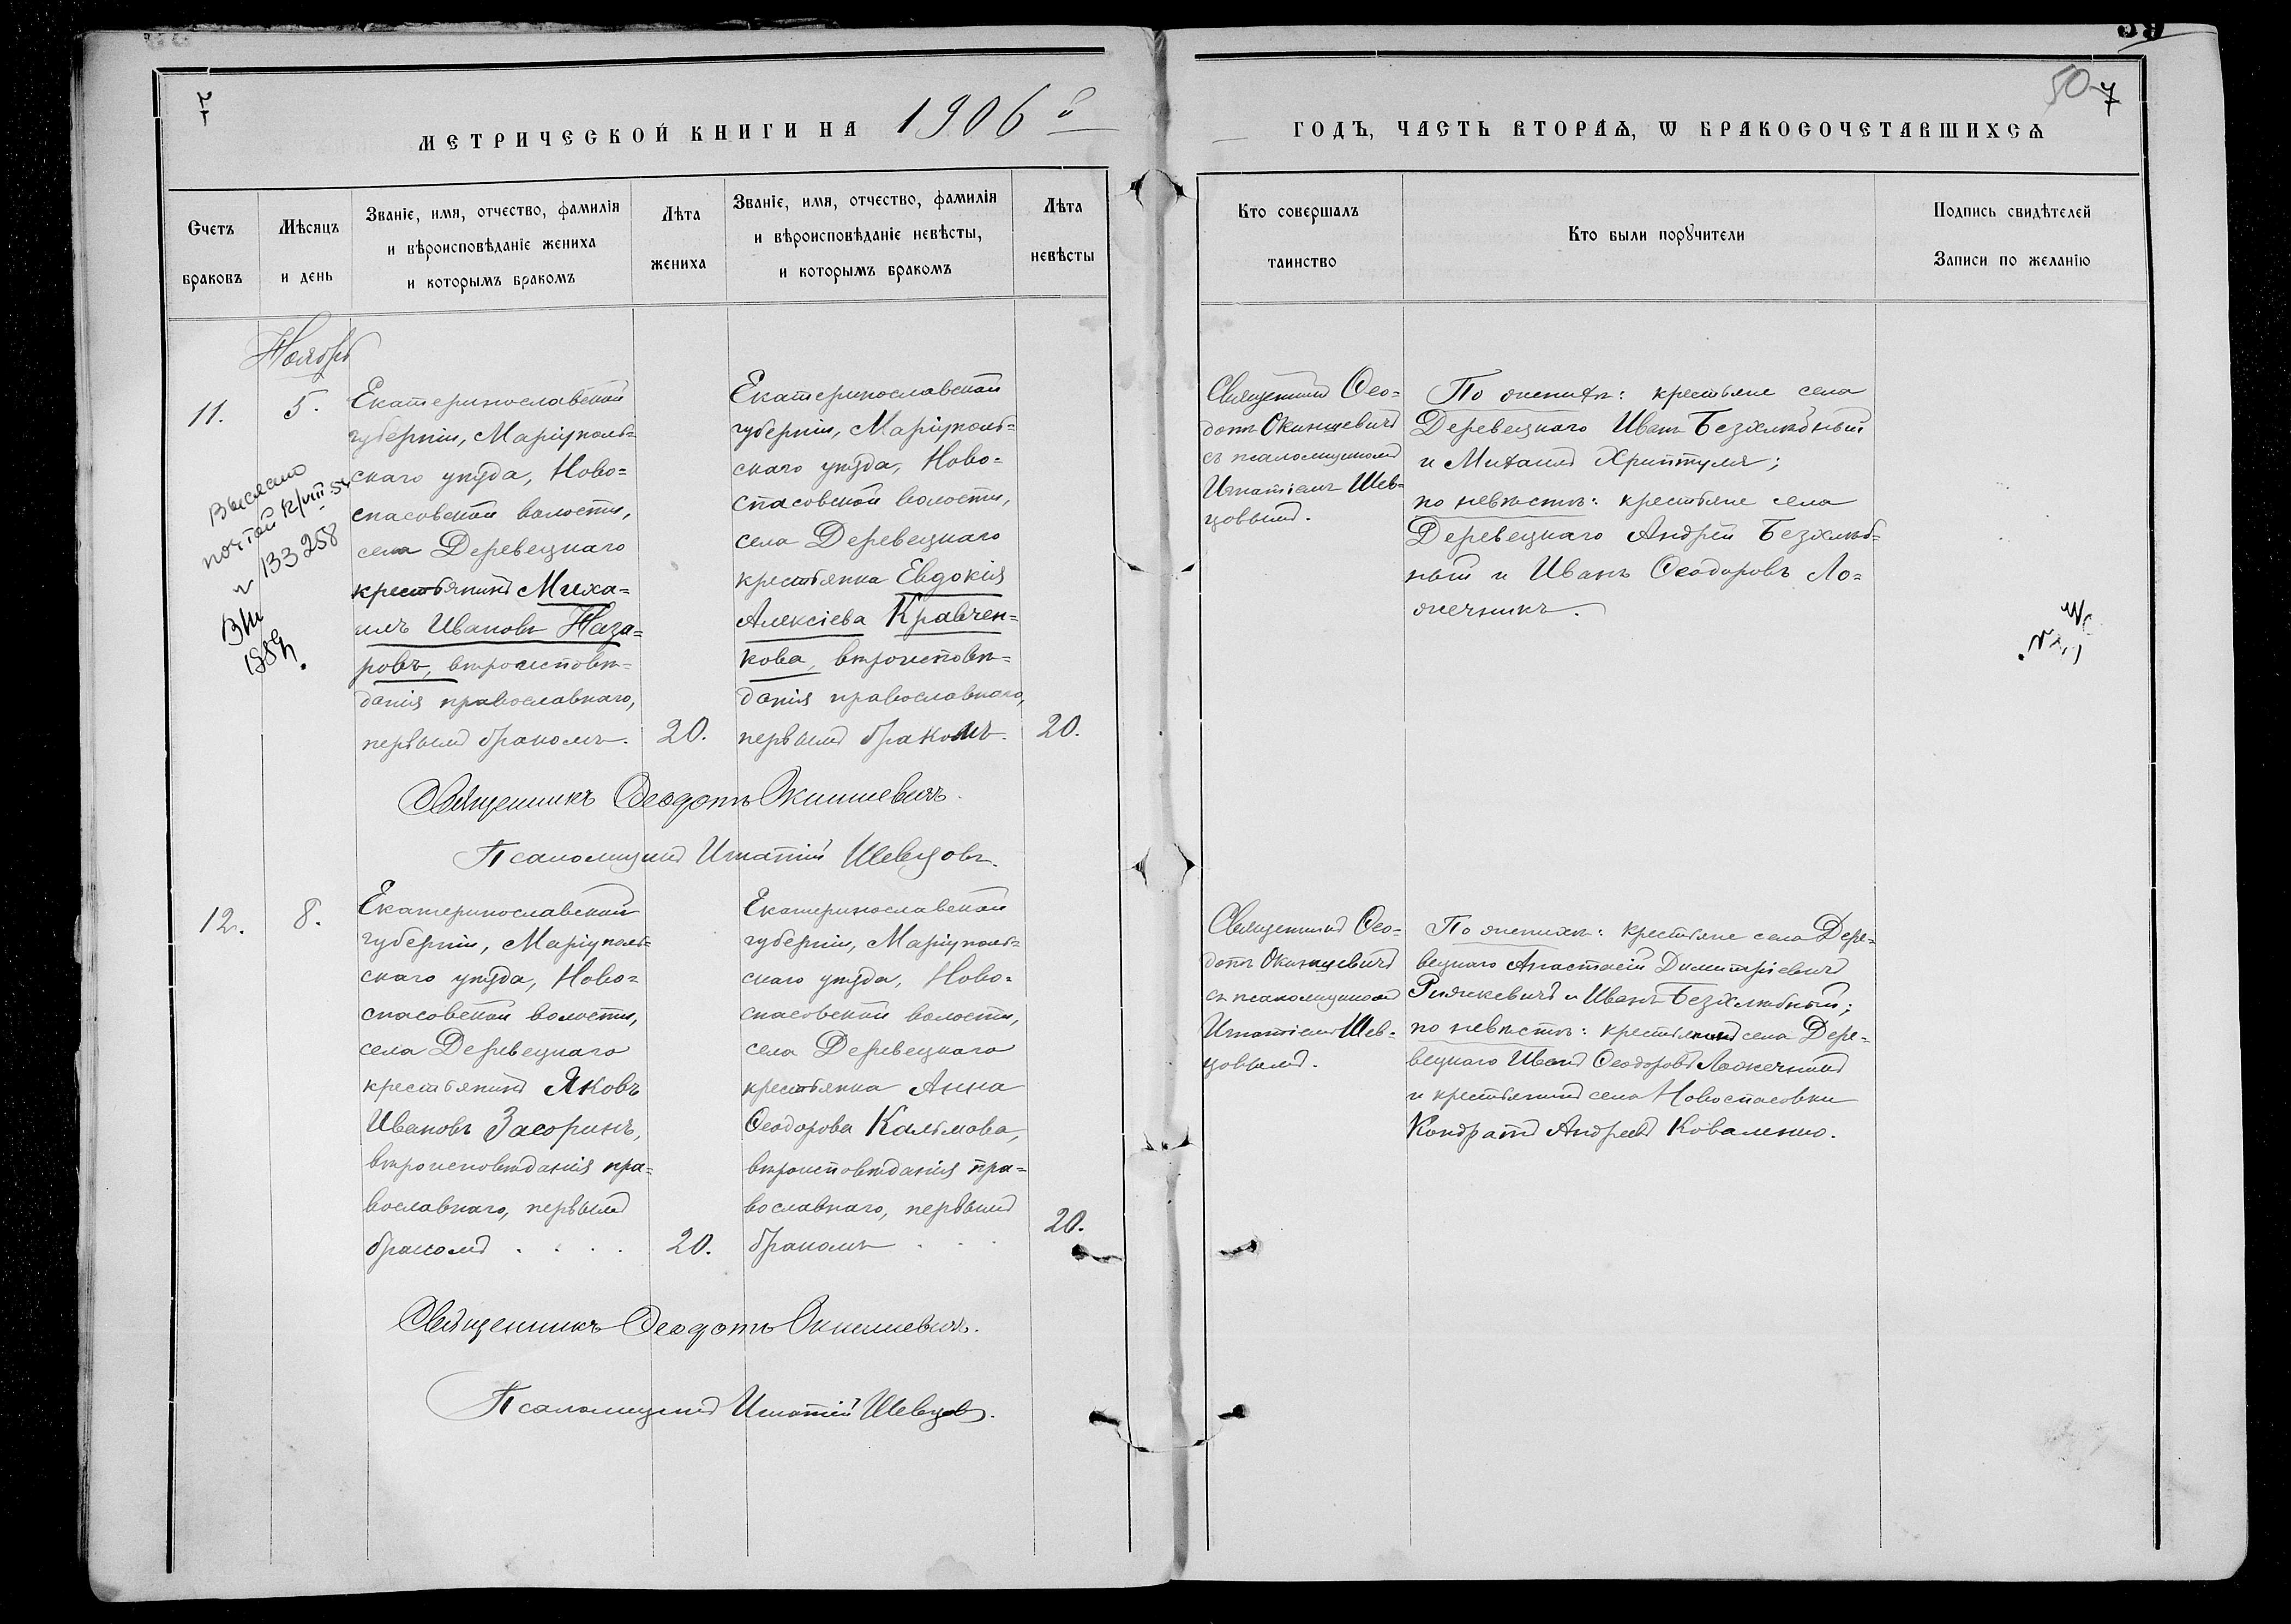 50 7
МЕТРИЧЕСКОЙ КНИГИ НА 1906 й
ГОДЪ, ЧАСТЬ ВТОРАѦ, Ѡ БРАКОСОЧЕТАВШИХСѦ
Счетъ
браковъ
Мѣсяцъ
и день
Званіе, имя, отчество, фамилія
и вѣроисповѣданіе жениха
и которымъ бракомъ
Лѣта
жениха
Званіе, имя, отчество, фамилія
и вѣроисповѣданіе невѣсты,
и которымъ бракомъ
Лѣта
невѣсты
Кто совершалъ
таинство
Кто были порꙋчители
Подпись свидѣтелей
Записи по желанію
Ноябрь
11.
5.
Выслано
почтой
133258
Екатеринославской
губерніи, Маріуполь=
скаго уѣзда, Ново=
спасовской волости,
села Деревецкаго
крестьянинъ Миха=
илъ Ивановъ Наза=
ровъ, вѣроисповѣ=
данія православнаго,
первымъ бракомъ.
20.
Екатеринославской
губерніи, Маріуполь=
скаго уѣзда, Ново=
спасовской волости,
села Деревецкаго
крестьянка Евдокія
Алексіева Кравчен=
кова, вѣроисповѣ=
данія православнаго,
первымъ бракомъ.
20.
Священникъ Ѳео=
дотъ Окиншевичъ
съ псаломщикомъ
Игнатіемъ Шев=
цовымъ.
По женихѣ: крестьяне села
Деревецкаго Иванъ Безхлѣбный
и Михаилъ Хриптуля;
по невѣстѣ: крестьяне села
Деревецкаго Андрей Безхлѣб=
ный и Иванъ Ѳеодоровъ Ло=
жечникъ.
Священникъ Ѳеодотъ Окиншевичъ.
Псаломщикъ Игнатій Шевцовъ.
12.
8.
Екатеринославской
губерніи, Маріуполь=
скаго уѣзда, Ново=
спасовской волости,
села Деревецкаго
крестьянинъ Яковъ
Ивановъ Засоринъ,
вѣроисповѣданія пра=
вославнаго, первымъ
бракомъ . . . .
20.
Екатеринославской
губерніи, Маріуполь=
скаго уѣзда, Ново=
спасовской волости,
села Деревецкаго
крестьянка Анна
Ѳеодорова Калѣмова,
вѣроисповѣданія пра=
вославнаго, первымъ
бракомъ . . .
20.
Священникъ Ѳео=
дотъ Окиншевичъ
съ псаломщикомъ
Игнатіемъ Шев=
цовымъ.
По женихѣ: крестьяне села Дере=
вецкаго Анастасій Димитріевичъ
и Иванъ Безхлѣбный;
по невѣстѣ: крестьянинъ села Дере=
вецкаго Иванъ Ѳеодоровъ Ложечникъ
и крестьянинъ села Новоспасовки
Кондратъ Андреевъ Коваленко.
Священникъ Ѳеодотъ Окиншевичъ.
Псаломщикъ Игнатій Шевцовъ.